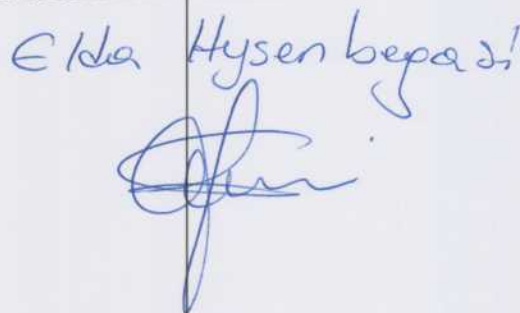 Elda Hysenbegasi